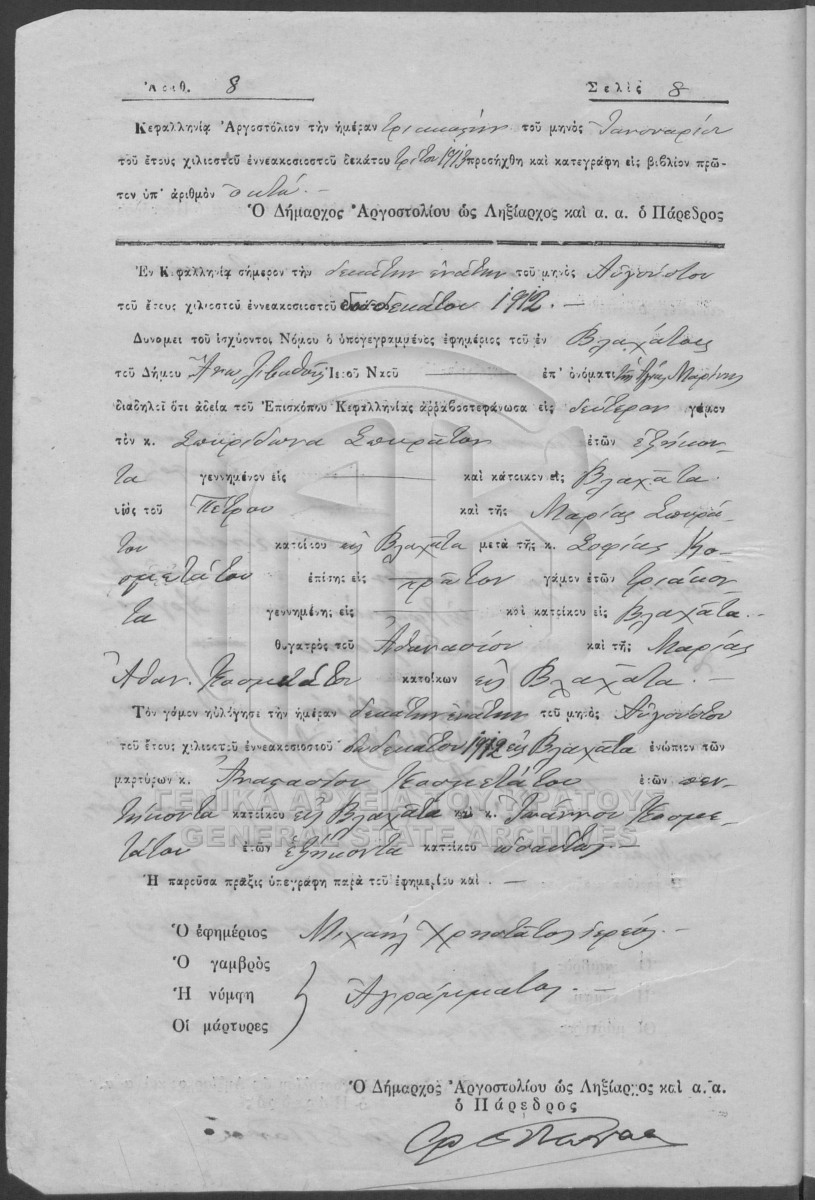 Ἀριθ. 8 Σελὶς 8
Κεφαλληνίᾳ Ἀργοστόλιον τὴν ἡμέραν τοῦ μηνὸς Ἰανουαρίου
τοῦ ἔτους χιλιοστοῦ ἐννεακοσιοστοῦ δεκάτου τρίτου 1913 προσήχθη καὶ κατεγράφη εἰς βιβλίον πρῶ-
τον ὑπ' ἀριθμὸν ὀκτώ. —
Ὁ Δήμαρχος Ἀργοστολίου ὡς Ληξίαρχος καὶ α. α. ὁ Πάρεδρος
Ἐν Κεφαλληνίᾳ σήμερον τὴν δεκάτην ἐνάτην τοῦ μηνὸς Αὐγούστου
τοῦ ἔτους χιλιοστοῦ ἐννεακοσιοστοῦ δωδεκάτου 1912. —
Δυνάμει τοῦ ἰσχύοντος Νόμου ὁ ὑπογεγραμμένος ἐφημέριος τοῦ ἐν Βλαχάτοις
τοῦ Δήμου Ἄνω Λιβαθοῦς Ἱεροῦ Ναοῦ — ἐπ' ὀνόματι τῆς Ἁγίας Μαρίνης
διαδηλοῖ ὅτι ἀδείᾳ τοῦ Ἐπισκόπου Κεφαλληνίας ἀρραβοστεφάνωσα εἰς δεύτερον γάμον
τὸν κ. Σπυρίδωνα Σπυράτον ἐτῶν ἑξήκον-
τα γεννημένον εἰς — καὶ κάτοικον εἰς Βλαχᾶτα.
υἱὸς τοῦ Πέτρου καὶ τῆς Μαρίας Σπυρά-
του κατοίκου εἰς Βλαχᾶτα μετὰ τῆς κ. Σοφίας Κο-
σμετάτου ἐπίσης εἰς πρῶτον γάμον ἐτῶν τριάκον-
τα γεννημένης εἰς — καὶ κατοίκου εἰς Βλαχᾶτα. —
θυγατρὸς τοῦ Ἀθανασίου καὶ τῆς Μαρίας
Ἀθαν. Κοσμετάτου κατοίκων εἰς Βλαχᾶτα. —
Τὸν γάμον ηὐλόγησε τὴν ἡμέραν δεκάτην ἐνάτην τοῦ μηνὸς Αὐγούστου
τοῦ ἔτους χιλιοστοῦ ἐννεακοσιοστοῦ δωδεκάτου 1912 εἰς Βλαχᾶτα ἐνώπιον τῶν
μαρτύρων κ. Κοσμετάτου ἐτῶν πεν-
τήκοντα κατοίκου εἰς Βλαχᾶτα καὶ κ. Ἰωάννου Κοσμε-
τάτου ἐτῶν ἑξήκοντα κατοίκου ὡσαύτως. —
ΓΕΝΙΚΑ ΑΡΧΕΙΑ ΤΟΥ ΚΡΑΤΟΥΣ
GENERAL STATE ARCHIVES
Ἡ παροῦσα πρᾶξις ὑπεγράφη παρὰ τοῦ ἐφημερίου καὶ. —
Ὁ ἐφημέριος Μιχαὴλ Χρηστᾶτος ἱερεύς. —
Ὁ γαμβρὸς
Ἡ νύμφη Ἀγράμματος. —
Οἱ μάρτυρες
Ὁ Δήμαρχος Ἀργοστολίου ὡς Ληξίαρχος καὶ α. α.
ὁ Πάρεδρος